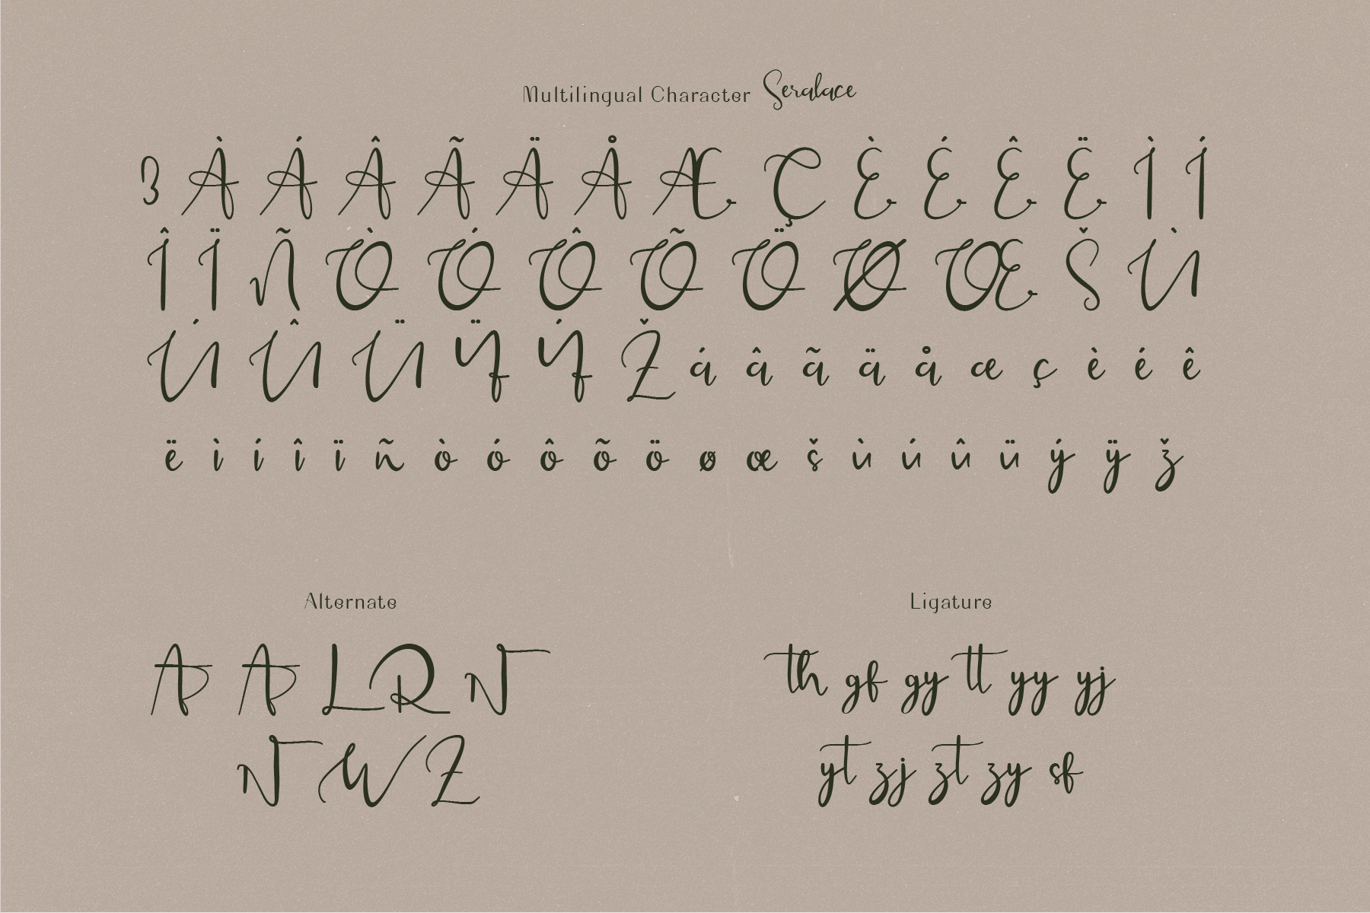 Multilingual Character Seralace
ß À Á Â Ã Ä Å Æ Ç È É Ê Ë Ì Í
Î Ï Ñ Ò Ó Ô Õ Ö Ø Œ Š Ù
Ú Û Ü Ÿ Ý Ž á â ã ä å æ ç è é ê
ë ì í î ï ñ ò ó ô õ ö ø œ š ù ú û ü ý ÿ ž
Alternate
A A L R N
N W Z
Ligature
th gf gy tt yy yj
yt zj zt zy sf